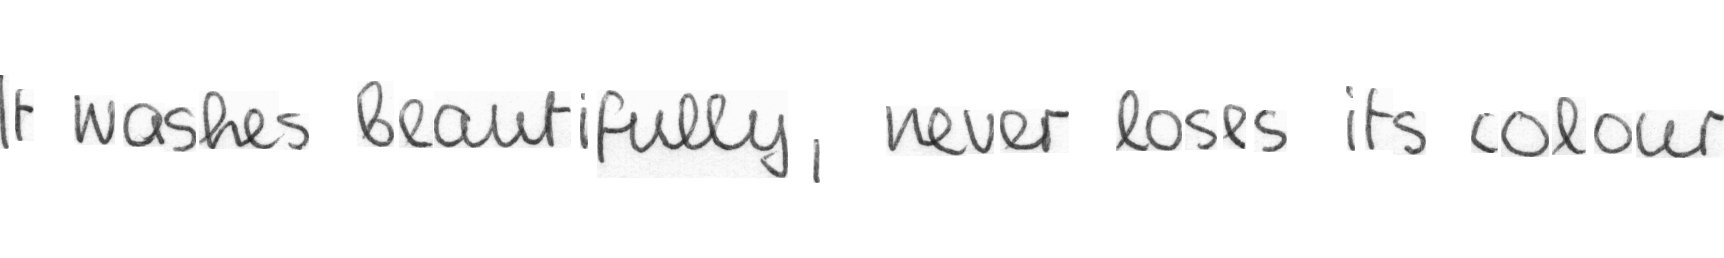 It washes beautifully, never loses its colour